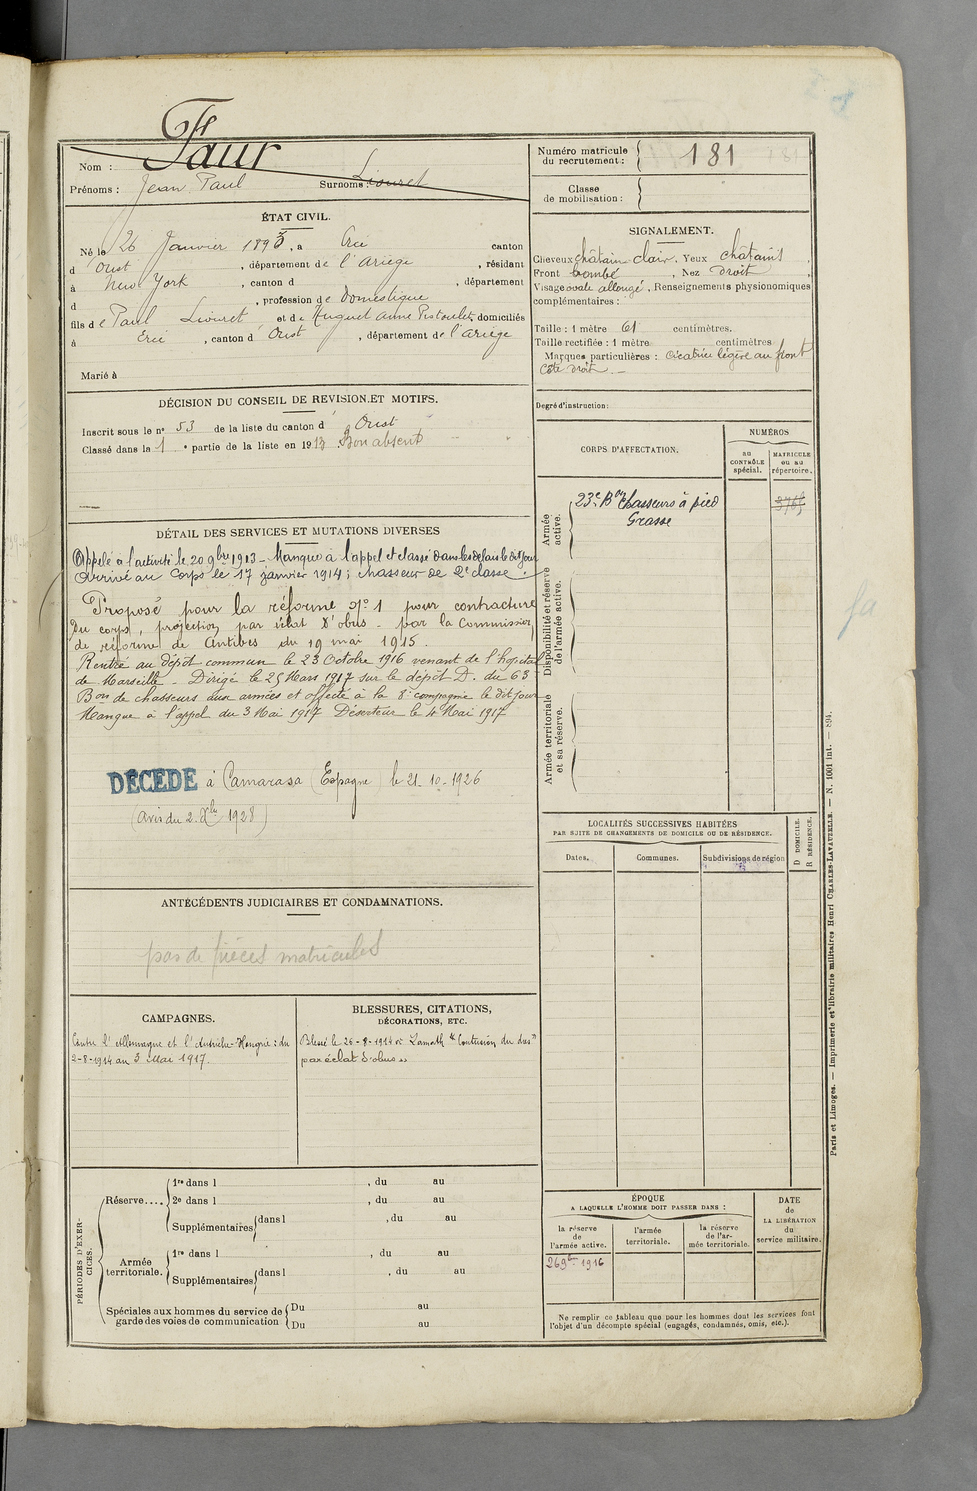 Nom : Faur
Prénoms : Jean Paul Surnoms : Liouret
Numéro matricule du recrutement : 181
Classe de mobilisation :
ÉTAT CIVIL.
Né le 26 Janvier 1893, à Ercé canton
d Oust, département de l'Ariège, résidant
à New York, canton d , département
d , profession de Domestique
fils de Paul Liouret et de Huguet Anne Pistoulet, domiciliés
à Ercé, canton d'Oust, département de l'Ariège
Marié à
SIGNALEMENT.
Cheveux châtain clair. Yeux châtains,
Front bombé, Nez droit,
Visage ovale allongé, Renseignements physionomiques
complémentaires :
Taille : 1 mètre 61 centimètres.
Taille rectifiée : 1 mètre centimètres
Marques particulières : cicatrice légère au front
côté droit. -
Degré d'instruction :
DÉCISION DU CONSEIL DE REVISION ET MOTIFS.
Inscrit sous le n° 53 de la liste du canton d Oust
Classé dans la 1e partie de la liste en 1913 Bon absent
CORPS D'AFFECTATION.
NUMÉROS
au CONTRÔLE spécial.
MATRICULE ou au répertoire.
Armée active.
23e Bon Chasseurs à pied
Grasse
3765
Disponibilité et réserve de l'armée active.
Armée territoriale et sa réserve.
DÉTAIL DES SERVICES ET MUTATIONS DIVERSES
Appelé à l'activité le 20 9bre 1913 - Manque à l'appel et classé dans les délais le dit jour
Arrivé au Corps le 17 janvier 1914 ; chasseur de 2e classe.
Proposé pour la réforme n° 1 pour contracture
du corps, projection par éclat d'obus - par la Commission
de réforme de Antibes du 19 mai 1915.
Rentré au dépôt commun le 23 Octobre 1916 venant de l'hopital
de Marseille - Dirigé le 25 Mars 1917 sur le dépôt D. du 63
Bon de chasseurs aux armées et affecté à la 8e compagnie le dit jour
Manque à l'appel du 3 Mai 1917 Déserteur le 4 Mai 1917
DÉCÉDÉ à Camarasa (Espagne) le 21-10-1926
(avis du 2 Xbre 1928)
fa
LOCALITÉS SUCCESSIVES HABITÉES
PAR SUITE DE CHANGEMENTS DE DOMICILE OU DE RÉSIDENCE.
Dates. Communes. Subdivisions de région D DOMICILE. R RÉSIDENCE.
ANTÉCÉDENTS JUDICIAIRES ET CONDAMNATIONS.
pas de pièces matricules
CAMPAGNES.
Contre l'Allemagne et l'Autriche-Hongrie : du
2-8-1914 au 3 Mai 1917.
BLESSURES, CITATIONS,
DÉCORATIONS, ETC.
Blessé le 26-8-1914 "Contusion du dos
par éclat d'obus"
PÉRIODES D'EXERCICES.
Réserve....
1re dans l , du au
2e dans l , du au
Supplémentaires dans l , du au
Armée territoriale.
1re dans l , du au
Supplémentaires dans l , du au
Spéciales aux hommes du service de garde des voies de communication
Du au
Du au
ÉPOQUE
A LAQUELLE L'HOMME DOIT PASSER DANS :
la réserve de l'armée active.
l'armée territoriale.
la réserve de l'armée territoriale.
DATE de LA LIBÉRATION du service militaire.
26 9bre 1916
Ne remplir ce tableau que pour les hommes dont les services font
l'objet d'un décompte spécial (engagés, condamnés, omis, etc.).
Paris et Limoges. — Imprimerie et librairie militaires Henri CHARLES-LAVAUZELLE. — N. 1001 int. — 894.